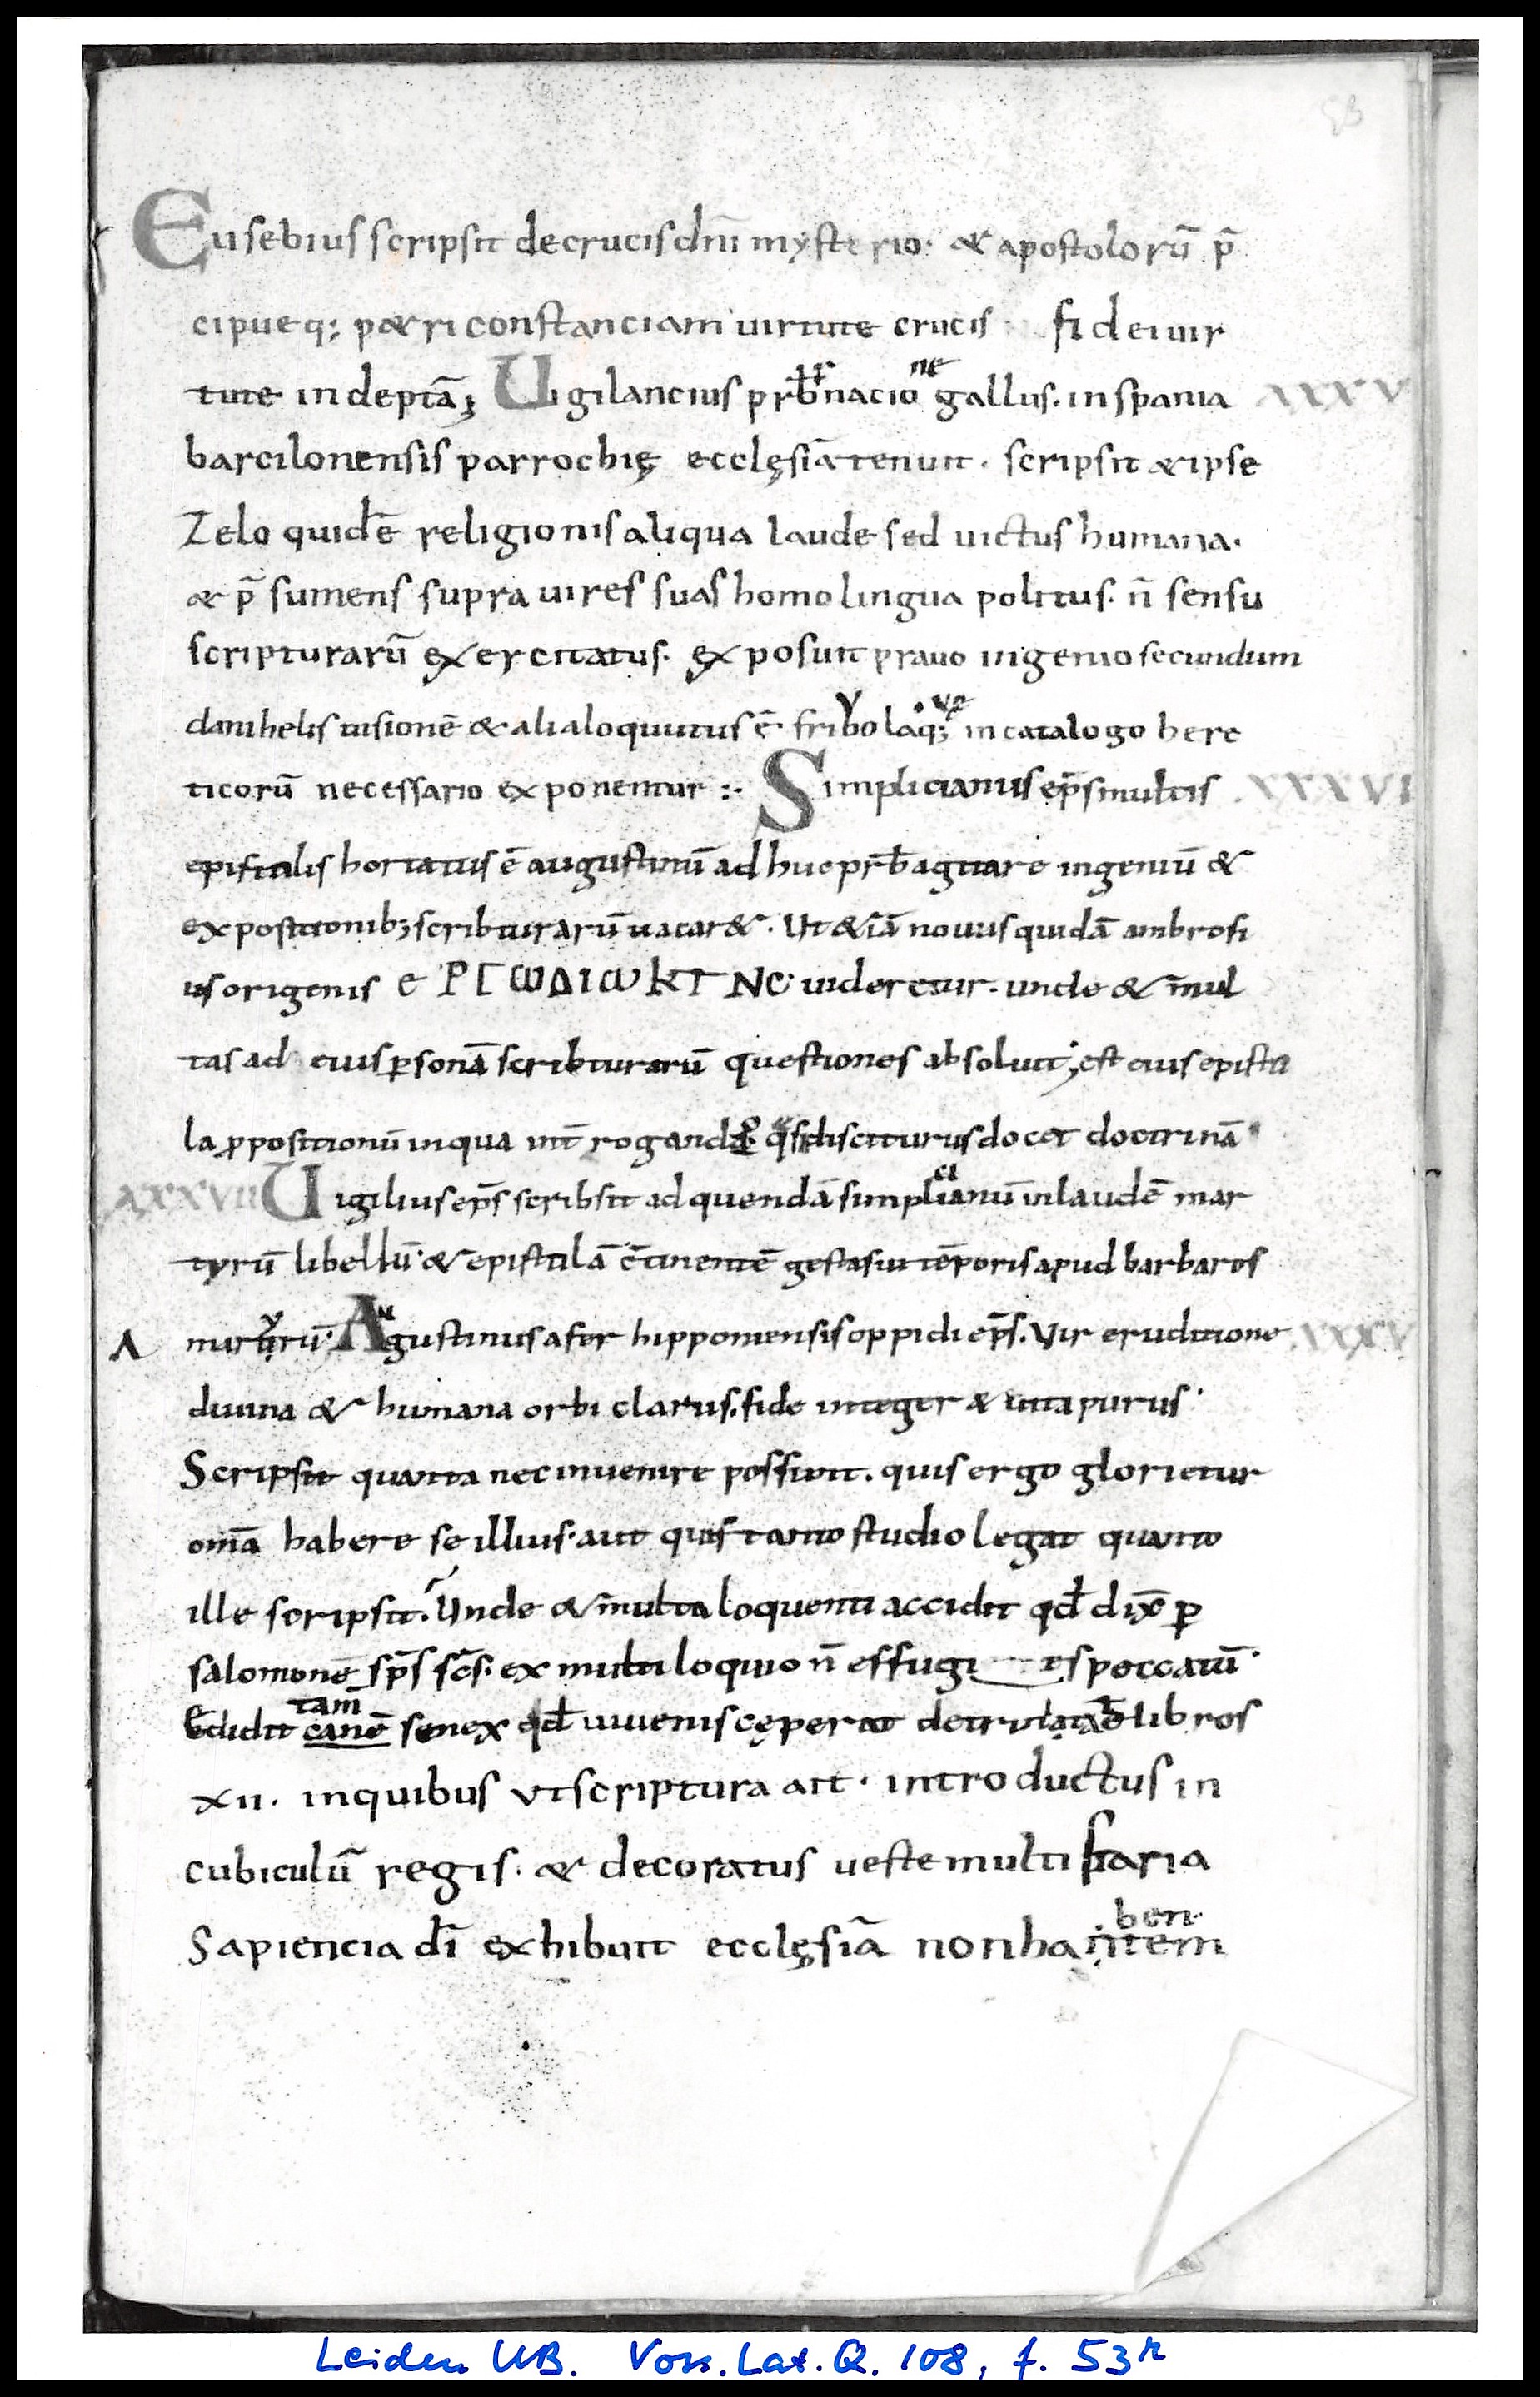 53
Eusebius scripsit de crucis dn̄i mysterio· & apostolorū p̄
cipueq; p&ri constanciam uirtute crucis fidei uir
tute indeptā; Uigilancius prb̄ nacione gallus. in spania XXXV
barcilonensis parrochię ecclęsiā tenuit. scripsit & ipse
Zelo quidē religionis aliqua laude sed uictus humana.
& p̄sumens supra uires suas homo lingua politus. n̄ sensu
scripturarū exercitatus. exposuit prauo ingenio secundum
danihelis uisionē & alia loquutus ē· friuola que in catalogo here
ticorū necessario exponentur :· Simplicianus ep̄s multis XXXVI
epistulis hortatus ē augustinū adhuc prb̄ agitare ingeniū &
expositionib; scribturarū uacar&. Ut &iā nouus quidā ambrosi
us origenis e ΡΓωΔιωκΤΝc· uideretur. unde & m̄ul
tas ad eius ꝑsonā scribturarū questiones absoluit; est eius epistu
la ꝓpositionū in qua int̄rogando q̄si disciturus docet doctrinā
XXXVII Uigilius ep̄s scribsit ad quendā simplicianū in laudē mar
tyrū libellū· & epistulā c̄tinentē gesta sui tēporis apud barbaros
martyrū· Agustinus afer hipponiensis oppidi ep̄s. Vir eruditione XXXV
diuina & humana orbi clarus. fide integer & uita purus·
Scripsit quanta nec inuenire possunt. quis ergo glorietur
om̄a habere se illius· aut quis tanto studio legat quanto
ille scripsit. Unde & m̄ulta loquenti accidit qd̄ dix̄ ꝑ
salomonē sp̄s sc̄s· ex multiloquio n̄ effugi es peccatū·
Edidit tam canē senex qd̄ iuuenis cęperat de libros
XII. in quibus ut scriptura ait· introductus in
cubiculū regis· & decoratus ueste multi faria
Sapiencia dī exhibuit ecclęsiā non habentem
Leiden UB. Voss. Lat. Q. 108, f. 53r